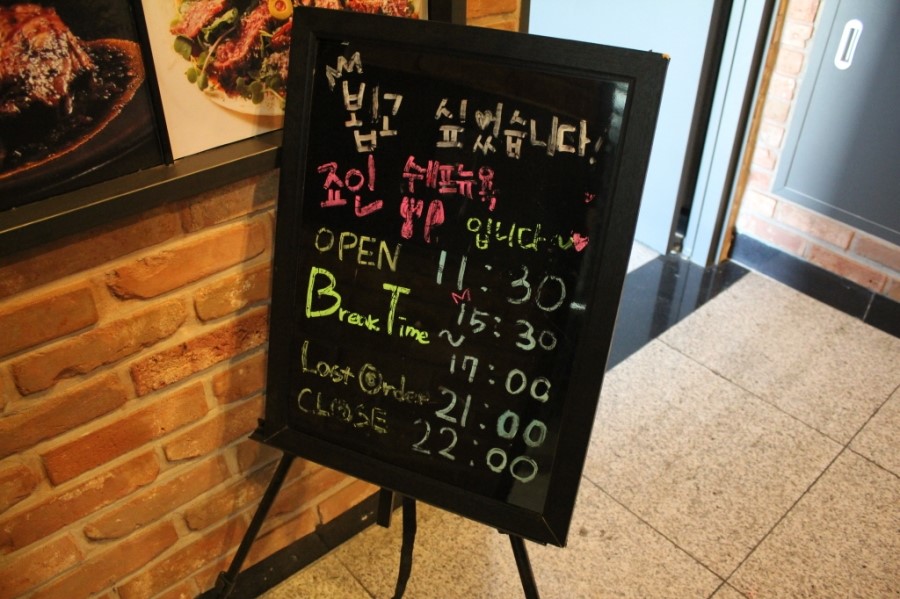 뵙고 싶었습니다!
죠인 쉐프뉴욕
입니다~
OPEN 11:30
Break Time 15:30
~ 17:00
Last Order 21:00
CLOSE 22:00